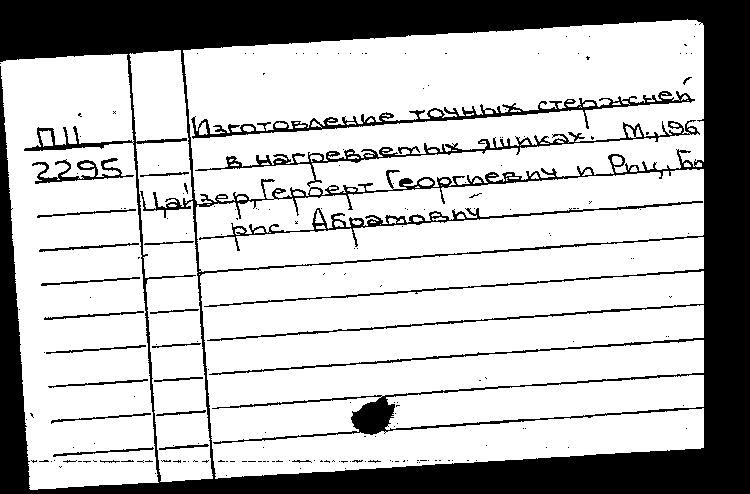 П11 Изготовление точных стержней
2295 в нагреваемых ящиках. М., 196
Цайзер, Герберт Георгиевич и Риц, Бо
рис Абрамович